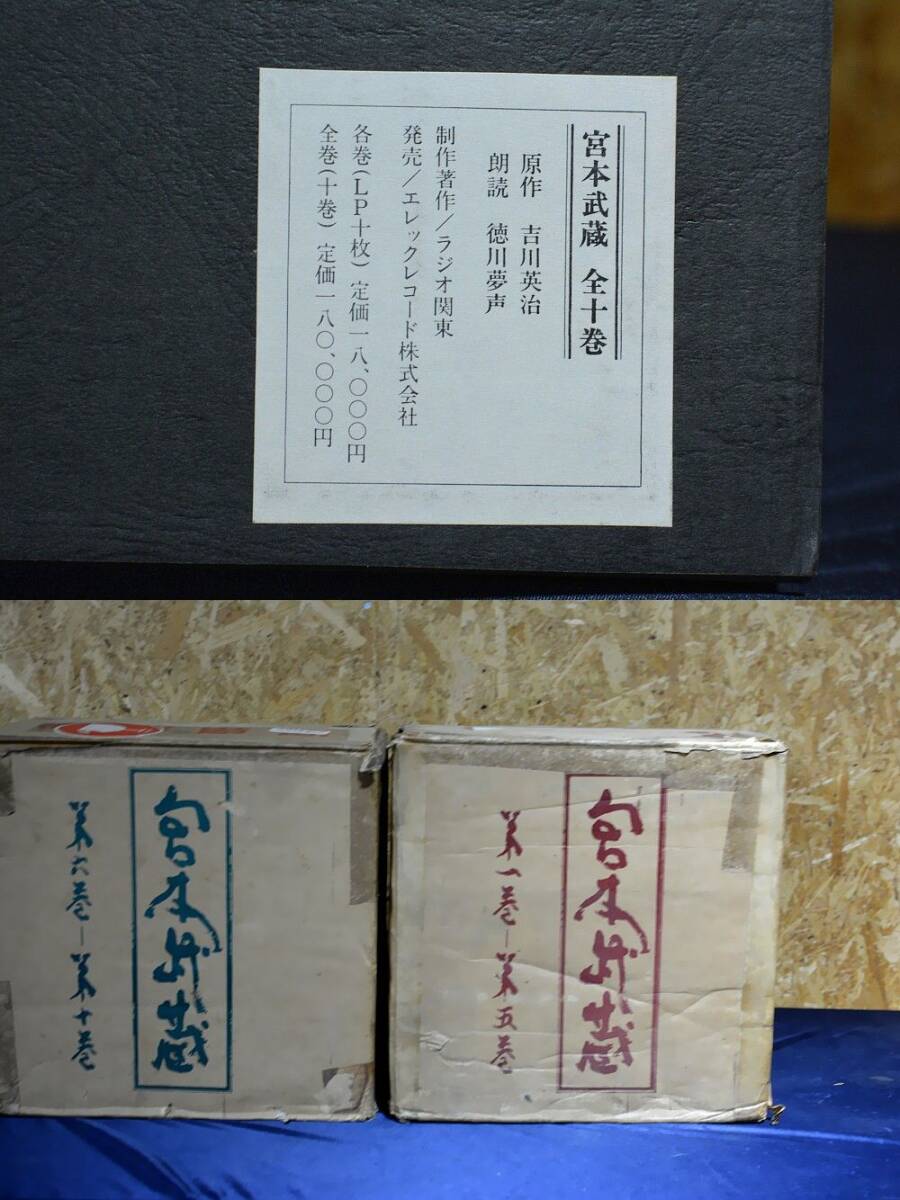 宮本武蔵 全十巻
原作 吉川英治
朗読 徳川夢声
制作著作/ラジオ関東
発売/エレックレコード株式会社
各巻(LP十枚) 定価一八、〇〇〇円
全巻(十巻) 定価一八〇、〇〇〇円
宮本武蔵
第六巻―第十巻
宮本武蔵
第一巻―第五巻